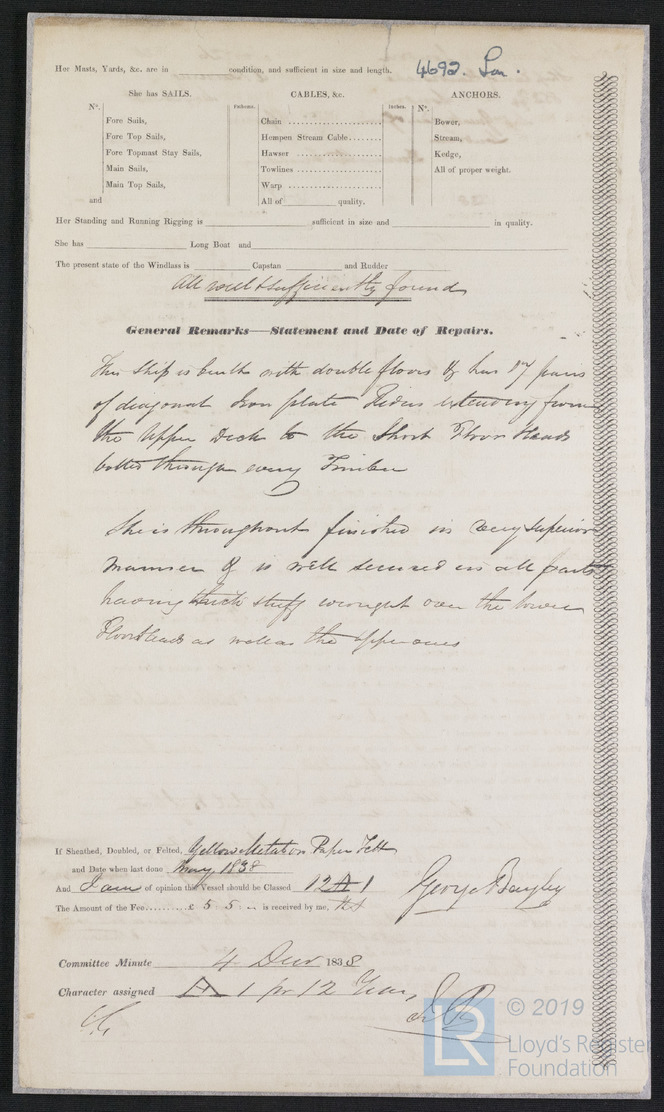 4692 Lon.
Her Masts, Yards, &c. are in condition, and sufficient in size and length.
She has SAILS. CABLES, &c. ANCHORS.
N°. Fathoms. Inches. N°.
Fore Sails, Chain Bower,
Fore Top Sails, Hempen Stream Cable Stream,
Fore Topmast Stay Sails, Hawser Kedge,
Main Sails, Towlines All of proper weight.
Main Top Sails, Warp
and All of quality.
Her Standing and Running Rigging is sufficient in size and in quality.
She has Long Boat and
The present state of the Windlass is Capstan and Rudder
All well & sufficiently found
General Remarks—Statement and Date of Repairs.
This Ship is built with double floors & has 17 pairs
of diagonal Iron plate Riders extending from
the Upper Deck to the Short Floor Heads
bolted through every Timber
She is throughout finished in very superior
manner & is well secured in all parts
having thick stuff wrought over the lower
Floorheads as well as the upper ones
If Sheathed, Doubled, or Felted, Yellow Metal on Paper Felt
and Date when last done May 1838
And I am of opinion this Vessel should be Classed 12 A 1
The Amount of the Fee £ 5 5 „ is received by me,
George Bayley
Committee Minute 4 Decr 1838
Character assigned A 1 for 12 Years
© 2019
LR
Lloyd's Register
Foundation